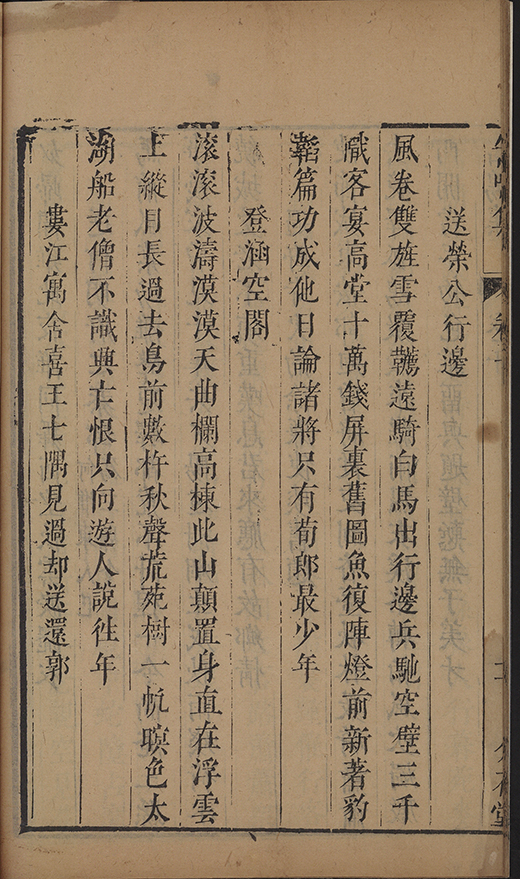 送榮公行邊
風卷雙旌雪覆韉遠騎白馬出行邊兵馳空壁三千
幟客宴高堂十萬錢屏裏舊圖魚復陣燈前新著豹
韜篇功成他日論諸將只有荀郎最少年
登涵空閣
滾滾波濤漠漠天曲欄高棟此山顛置身直在浮雲
上縱目長過去鳥前數杵秋聲荒苑樹一帆暝色太
湖船老僧不識興亡恨只向遊人說往年
婁江寓舍喜王七隅見過却送還郭